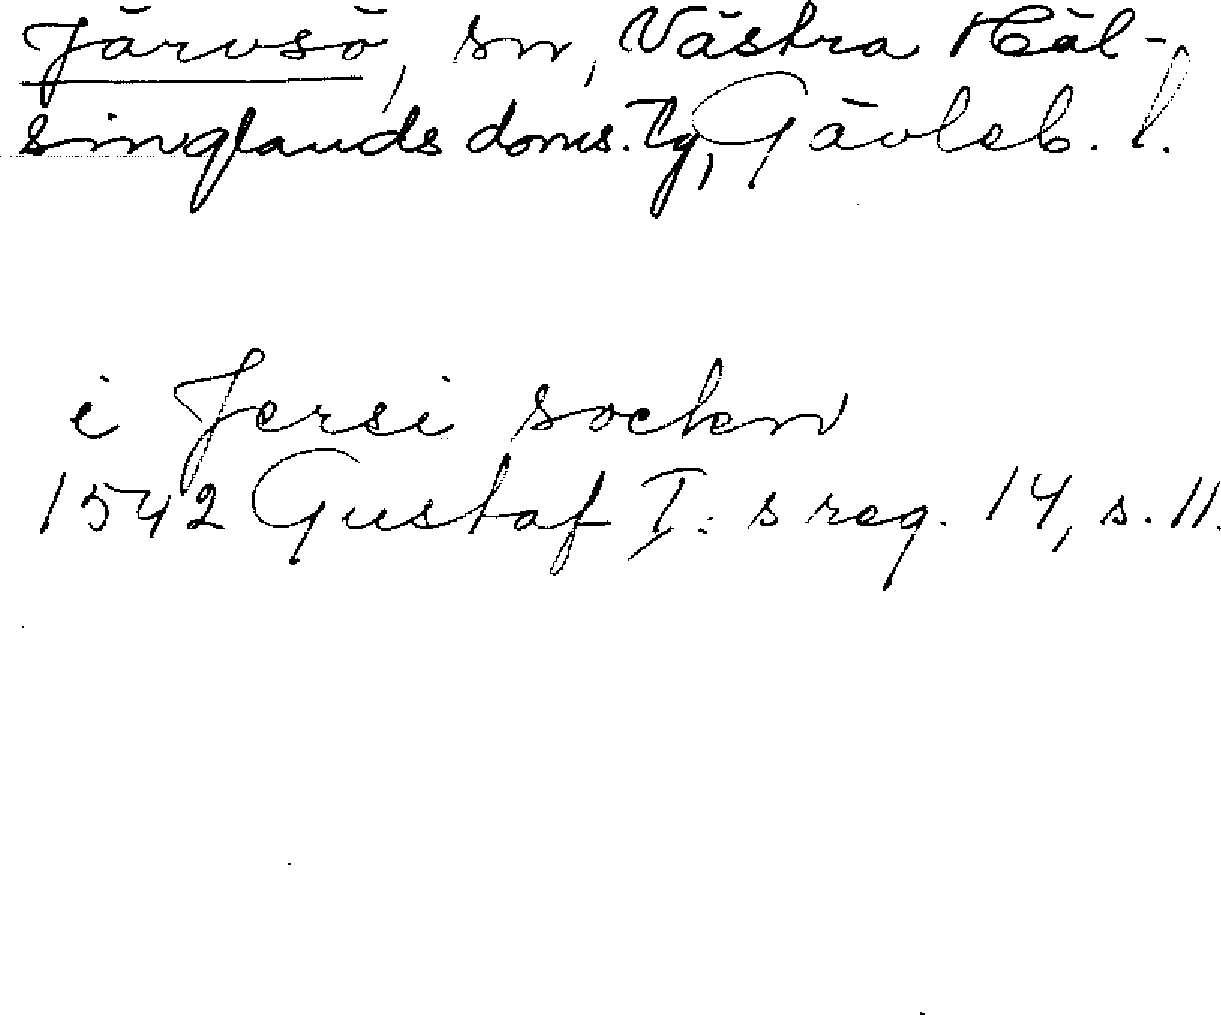 Järvsö, sn, Västra Häl-
singlands doms. tg, Gävleb. l.
i Jersi socken
1542 Gustaf I:s reg. 14, s. 11.